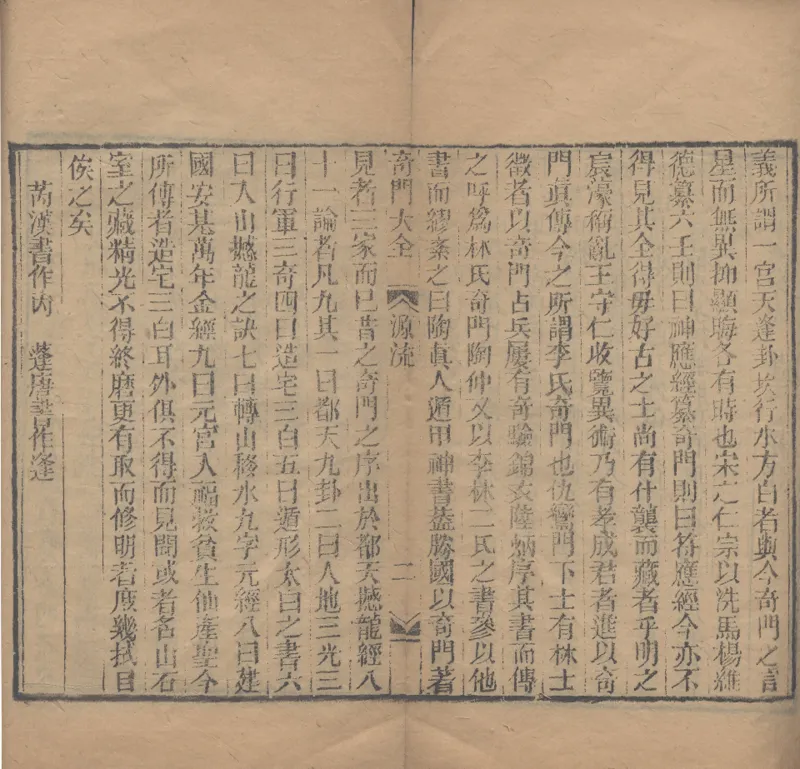 義所謂一宮天逢卦坎行水方白者與今奇門之言
星而無異抑顯晦各有時也宋之仁宗以洗馬楊維
德纂六壬則曰神應經纂奇門則曰符應經今亦不
得見其全得毋好古之士尚有什襲而藏者乎明之
宸濠稱亂王守仁收覽異術乃有李成君者進以奇
門眞傳今之所謂李氏奇門也仇鸞門下士有林士
徵者以奇門占兵屢有奇驗錦衣陸炳序其書而傳
之呼爲林氏奇門陶仲文以李林二氏之書參以他
書而繆紊之曰陶眞人遁甲神書蓋勝國以奇門著
奇門大全 源流 二
見者三家而已昔之奇門之序出於都天撼龍經八
十一論者凡九其一曰都天九卦二曰人地三光三
曰行軍三奇四曰造宅三白五曰遁形太白之書六
曰入山撼龍之訣七曰轉山移水九字元經八曰建
國安基萬年金經九曰元宮入福救貧生仙產聖今
所傳者造宅三白耳外俱不得而見聞或者名山石
室之藏精光不得終磨更有取而修明者庶幾拭目
俟之矣
芮漢書作內 蓬唐書作逢